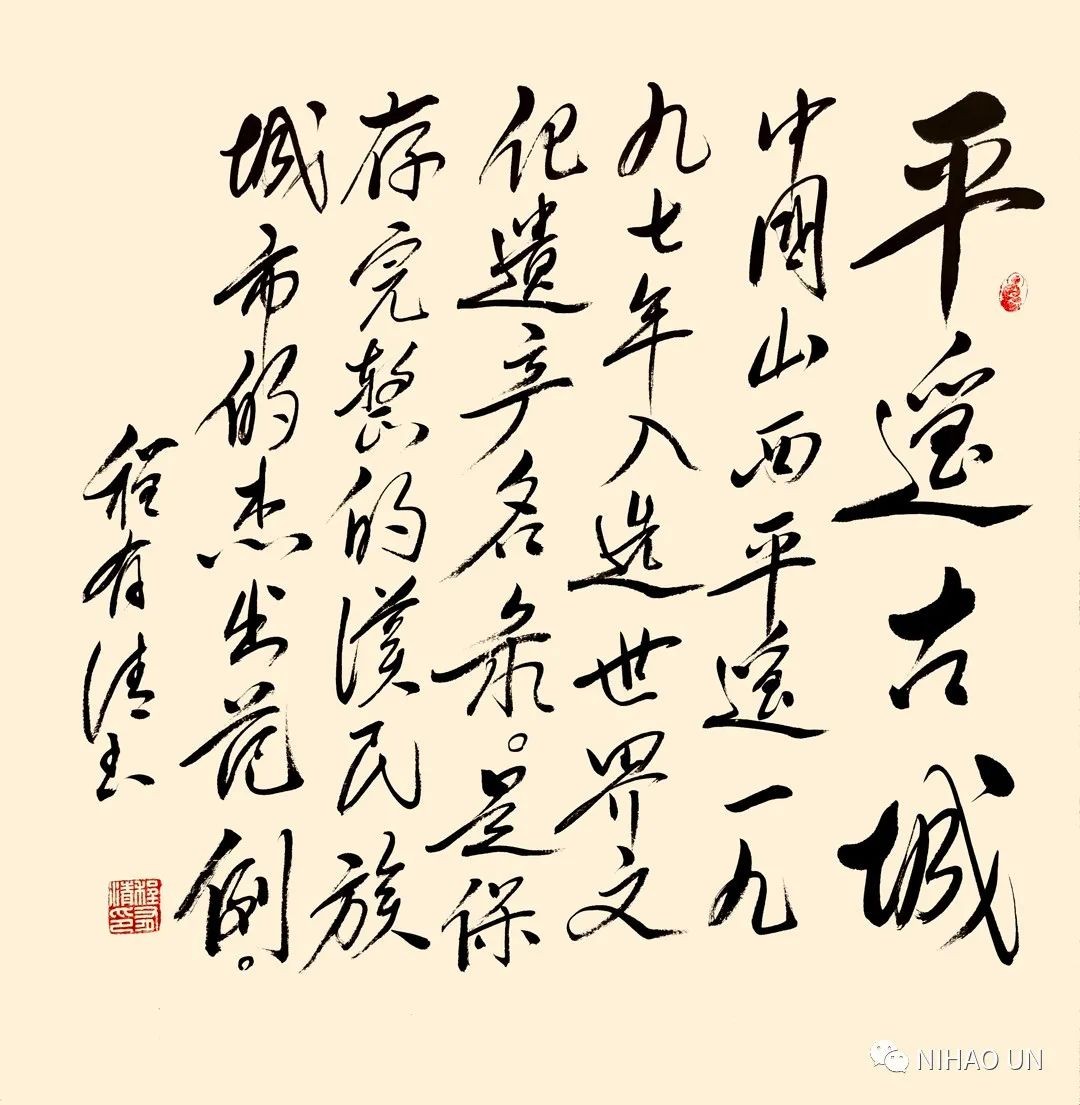 平遥古城
中國山西平遥一九
九七年入选世界文
化遺产名录。是保
存完整的漢民族
城市的杰出范例。
程有清书
程有清印
NIHAO UN